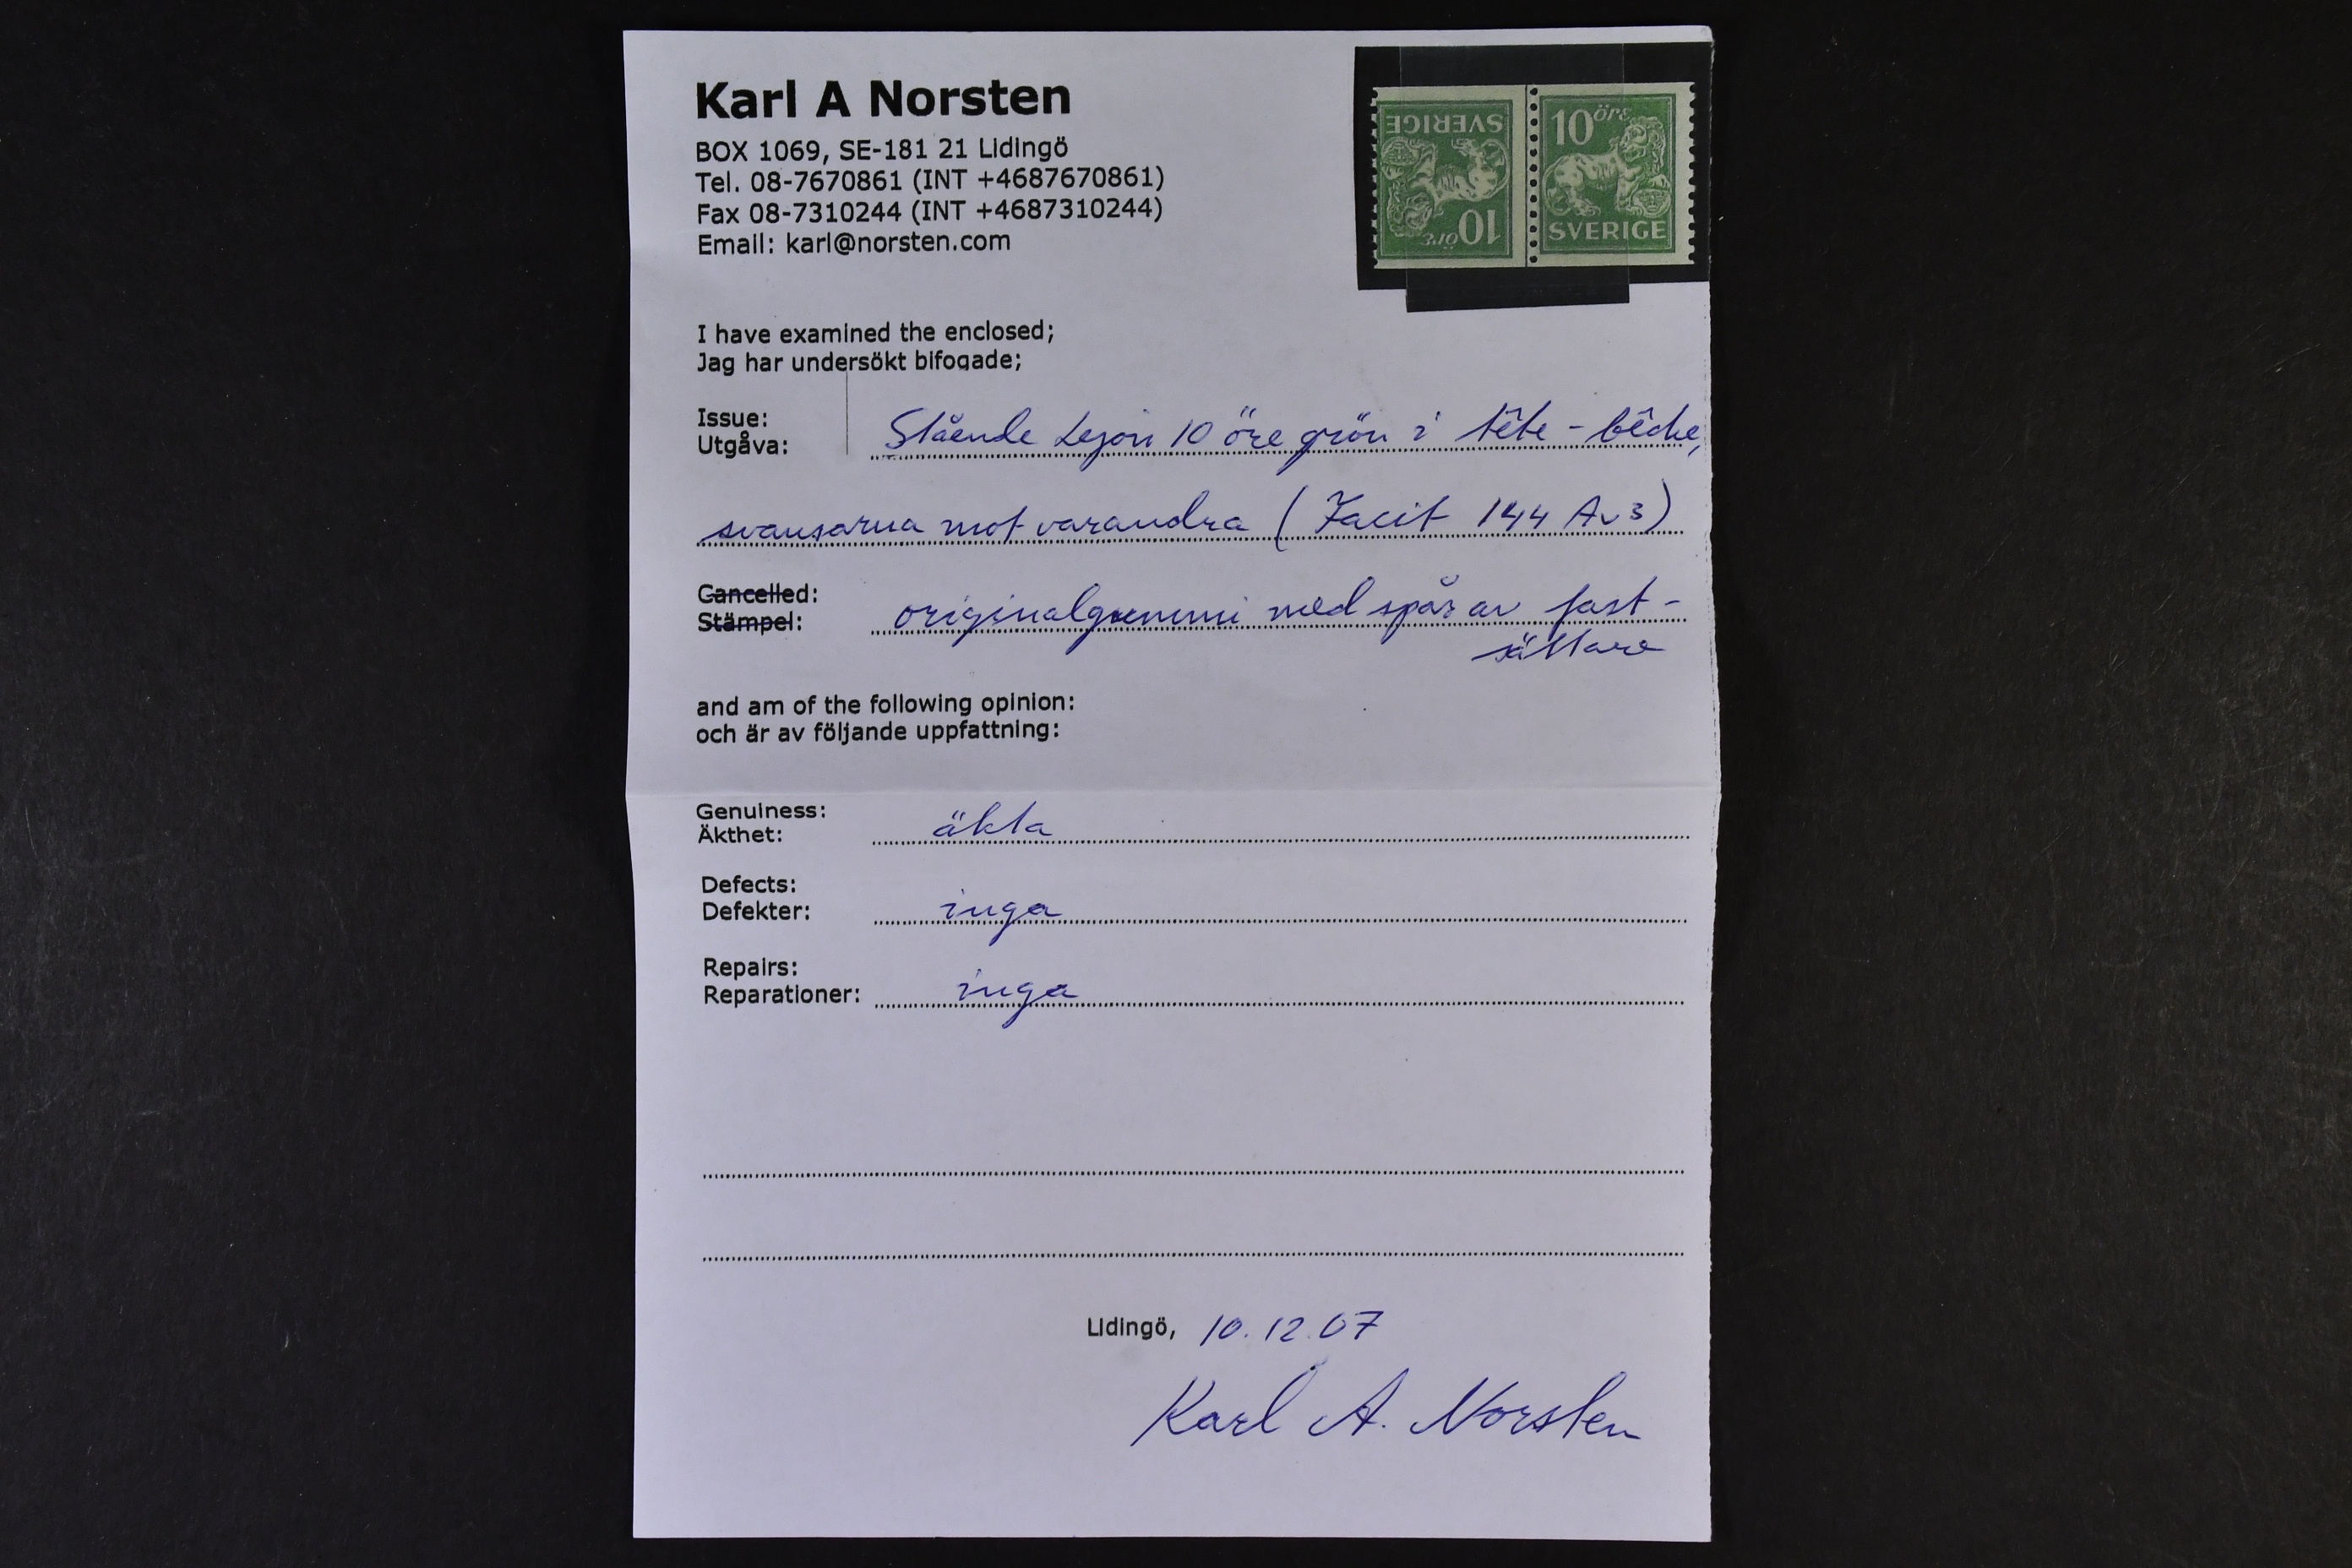 Karl A Norsten
BOX 1069, SE-181 21 Lidingö
Tel. 08-7670861 (INT +4687670861)
Fax 08-7310244 (INT +4687310244)
Email: karl@norsten.com
SVERIGE
10 öre
10 öre
SVERIGE
I have examined the enclosed;
Jag har undersökt bifogade;
Issue:
Utgåva: Stående Lejon 10 öre grön i tête-bêche,
svansarna mot varandra (Facit 144 Av3)
Cancelled:
Stämpel: originalgummi med spår av fast-
sättare
and am of the following opinion:
och är av följande uppfattning:
Genuiness:
Äkthet: äkta
Defects:
Defekter: inga
Repairs:
Reparationer: inga
Lidingö, 10.12.07
Karl A. Norsten